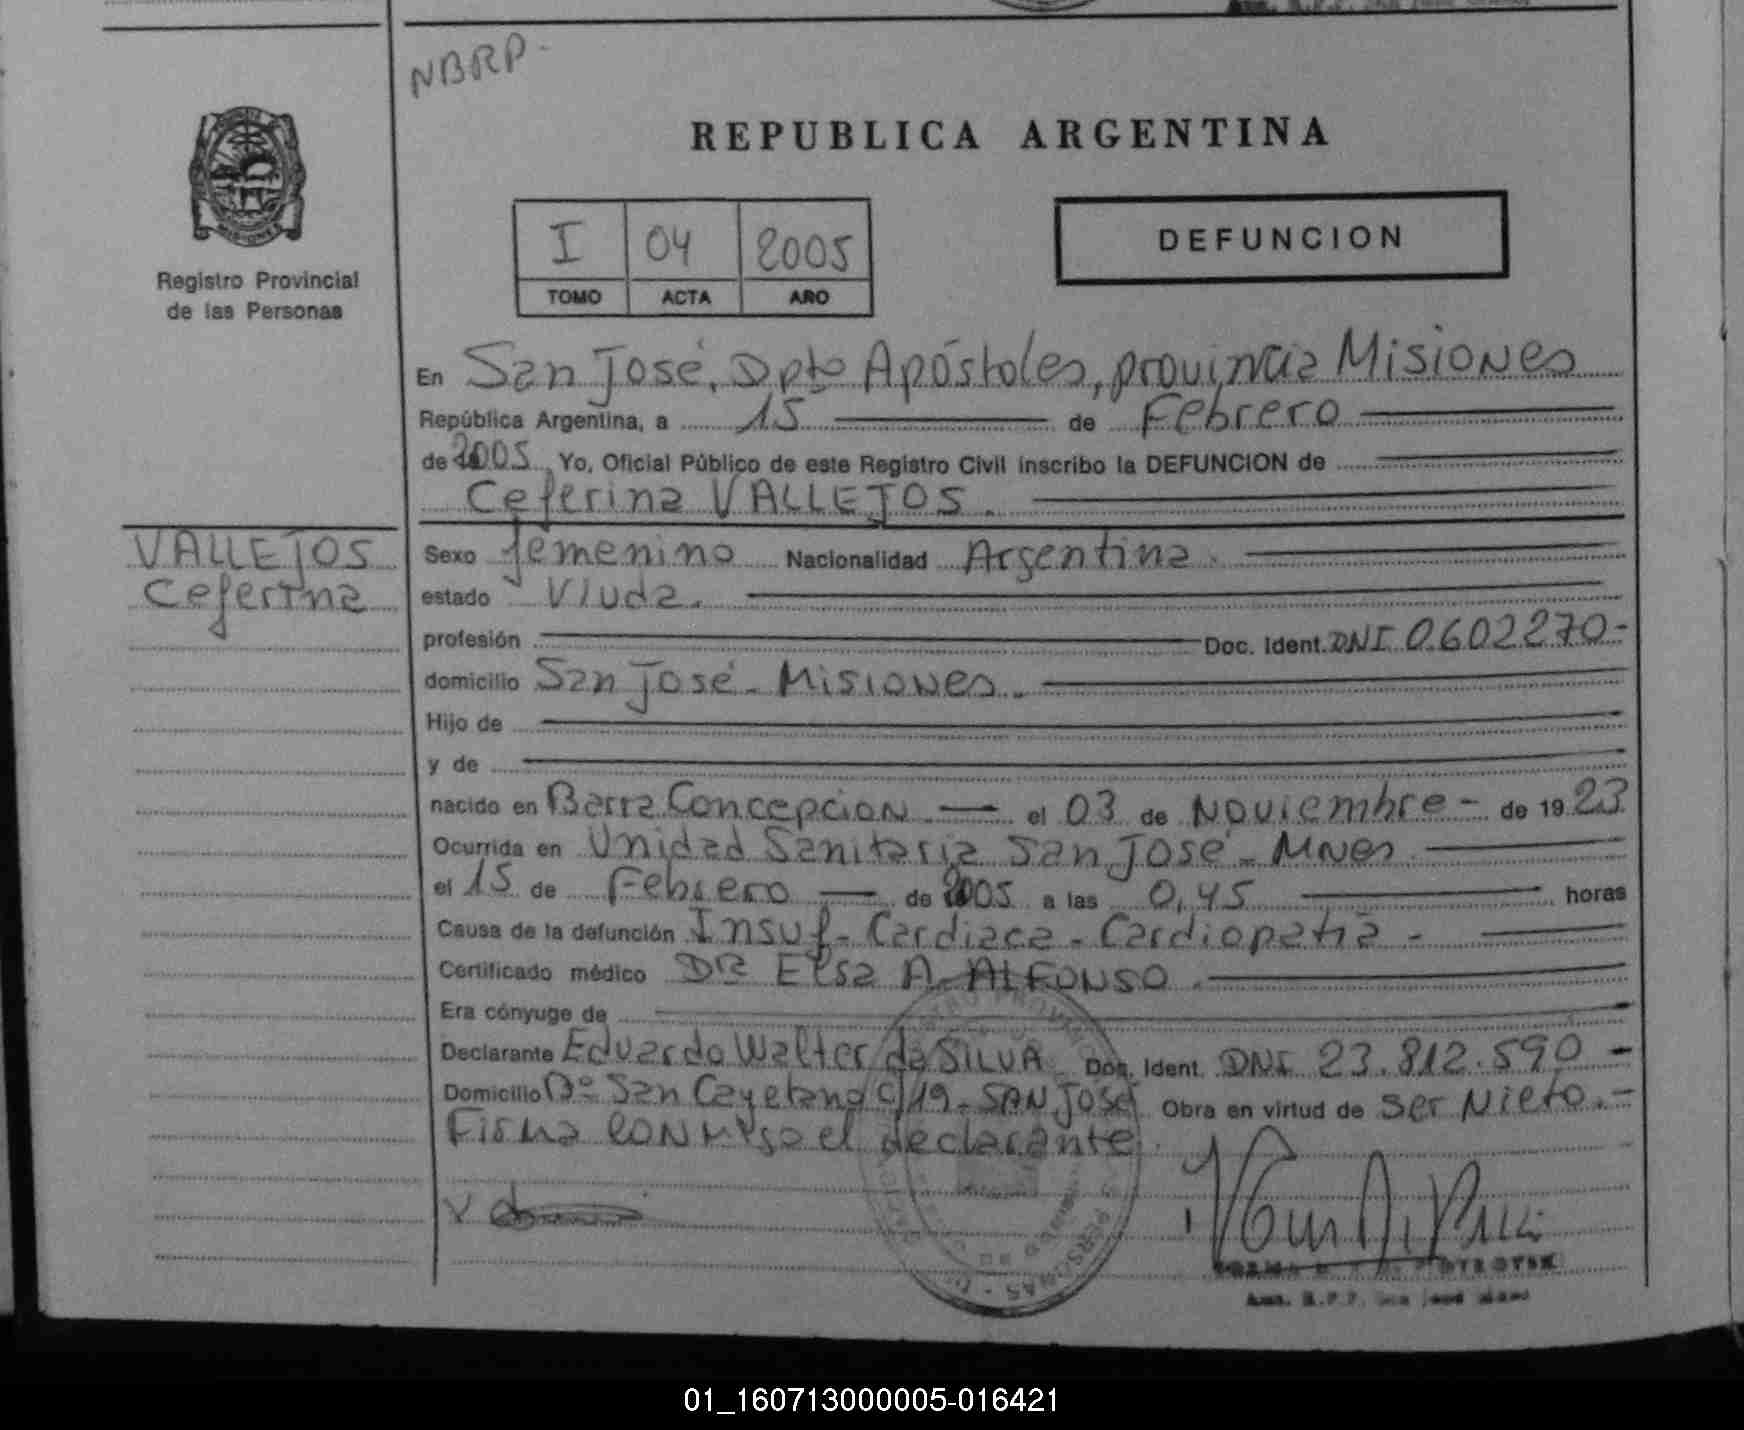 NBRP-
REPUBLICA ARGENTINA
MISIONES
Registro Provincial
de las Personas
I 04 2005
TOMO ACTA AÑO
DEFUNCION
En San José, Dpto Apóstoles, provincia Misiones
República Argentina, a 15 de Febrero
de 2005 Yo, Oficial Público de este Registro Civil inscribo la DEFUNCION de
Ceferina VALLEJOS.
VALLEJOS
Ceferina
Sexo femenino Nacionalidad Argentina.
estado Viuda.
profesión Doc. Ident. DNI 0602270-
domicilio San José - Misiones.
Hijo de
y de
nacido en Barra Concepcion - el 03 de Noviembre - de 19 23
Ocurrida en Unidad Sanitaria San José - MNes
el 15 de Febrero - de 2005 a las 0,45 horas
Causa de la defunción Insuf - Cardiaca - Cardiopatia -
Certificado médico Dra Elsa A. ALFONSO.
Era cónyuge de
Declarante Eduardo Walter da SILVA Doc. Ident. DNI 23.812.590 -
Domicilio Bº San Cayetano C/19 - SAN José Obra en virtud de ser Nieto.-
Firma conmigo el declarante.
01_160713000005-016421